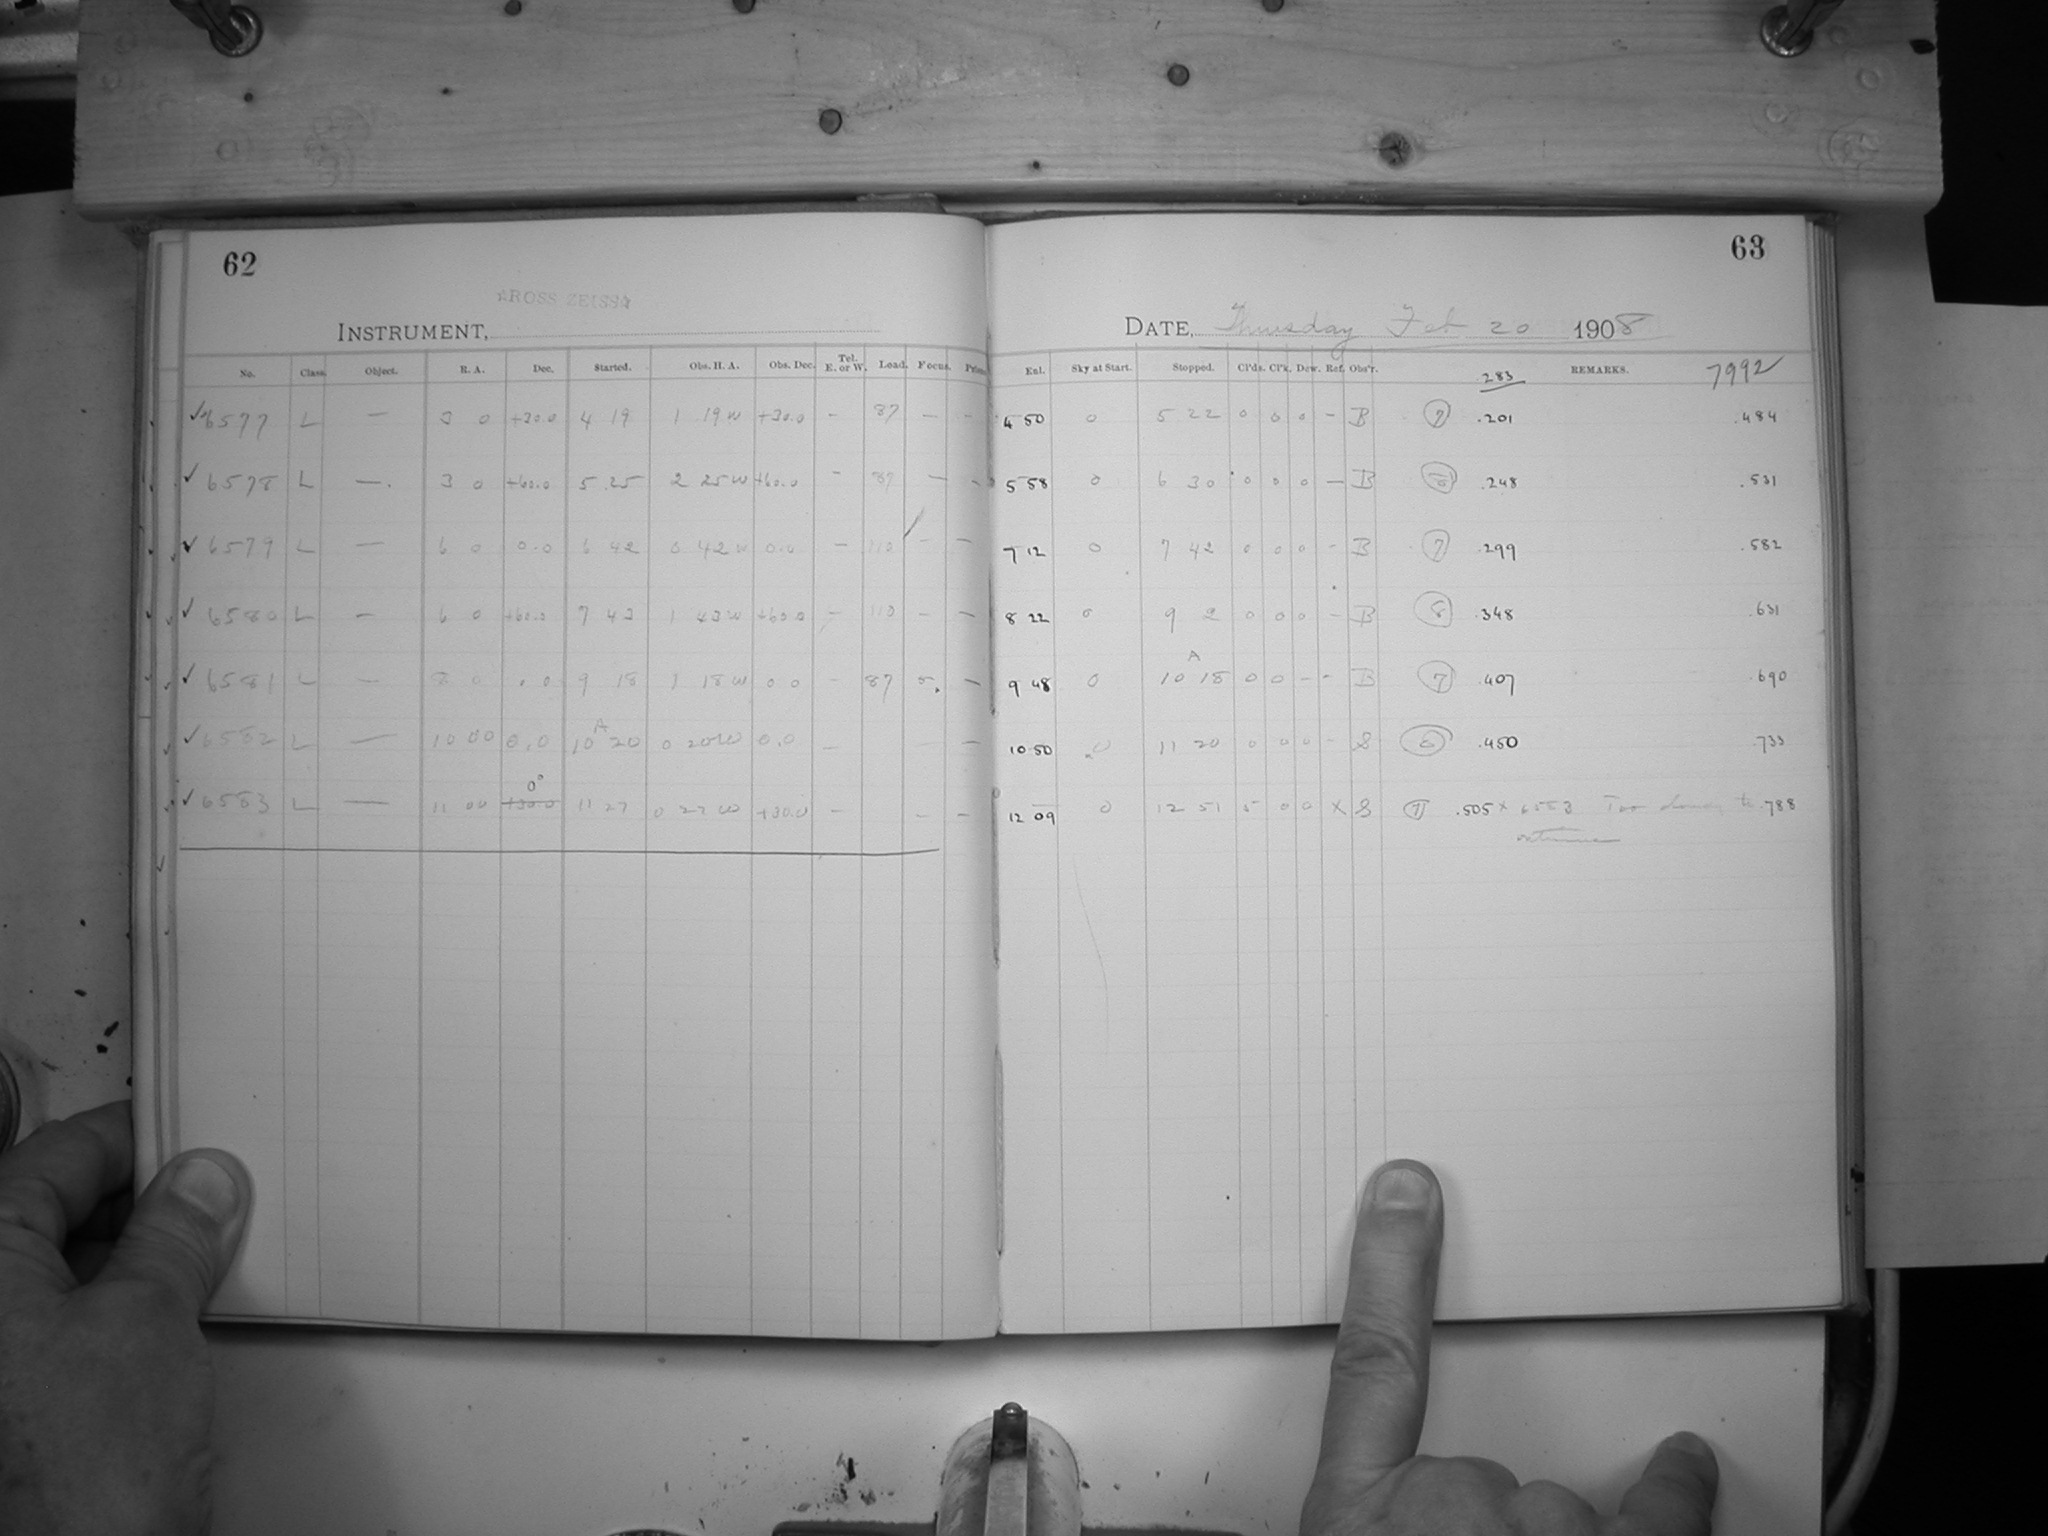 62
ROSS ZEISS
INSTRUMENT,
No. Class. Object. R. A. Dec. Started. Obs. H. A. Obs. Dec. Tel. E. or W. Load. Focus.
✓ 6577 L — 3 0 +30.0 4 19 1 19 W +30.0 - 87 — -
✓ 6578 L —. 3 0 +60.0 5 25 2 25 W +60.0 - 87 — -
✓ 6579 L — 6 0 0.0 6 42 0 42 W 0.0 - 110 - —
✓ 6580 L — 6 0 +60.0 7 43 1 43 W +60.0 - 110 - —
✓ 6581 L — 8 0 0 0 9 18 1 18 W 0 0 - 87 —
✓ 6582 L — 10 00 0.0 10 20 A 0 20 W 0.0 — —
✓ 6583 L — 11 00 +30.0 0° 11 27 0 27 W +30.0 - - —
63
DATE, Thursday Feb 20 1908
Exl. Sky at Start. Stopped. Cl'ds. Cl'k. Dew. Ref. Obs'r. .283 REMARKS. 7992
4 50 0 5 22 0 0 0 - B 7 .201 .484
5 58 0 6 30 0 0 0 — B 8 .248 .531
7 12 0 7 42 0 0 0 - B 7 .299 .582
8 22 0 9 2 0 0 0 - B 8 .348 .631
9 48 0 10 18 A 0 0 - - B 7 .407 .690
10 50 0 11 20 0 0 0 - S 6 .450 .733
12 09 0 12 51 5 0 0 X S .505 x 6553 Too cloudy to .788
continue